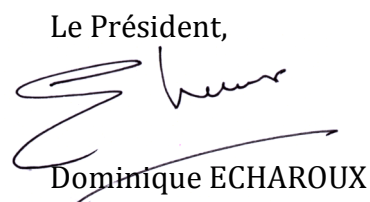 Le Président,
Dominique ECHAROUX